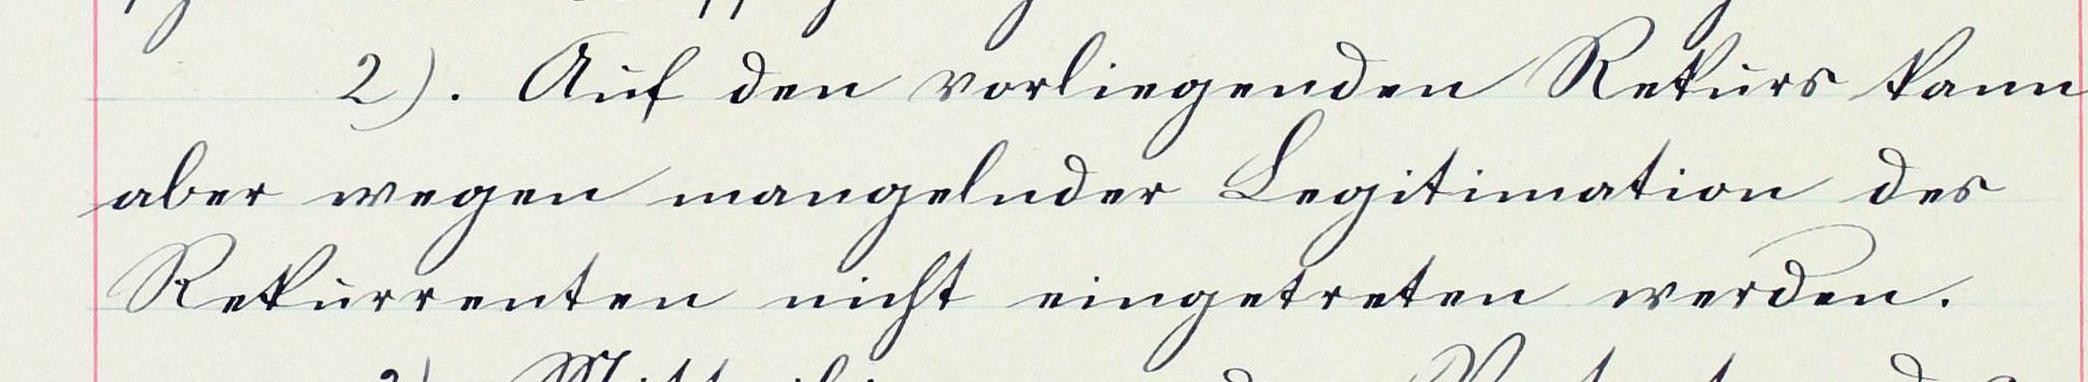 2). Auf den vorliegenden Rekurs kann
aber wegen mangelnder Legitimation des
Rekurrenten nicht eingetreten werden.